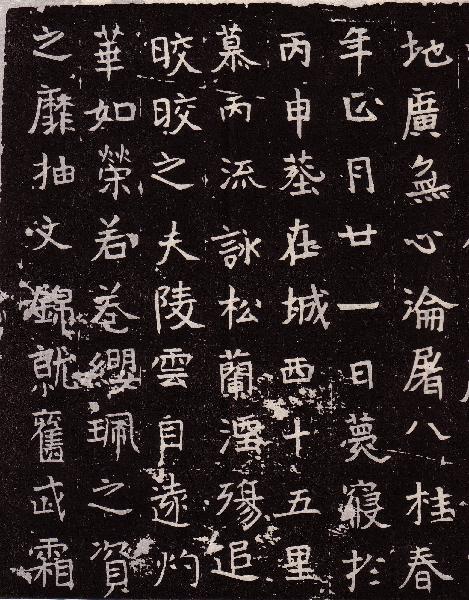 地廣無心淪屠八桂春
年正月廿一日薨寢於
丙申葬在城西十五里
慕丙流詠松蘭湮殤追
晈晈之夫陵雲自遠灼
華如榮若菴纓珮之資
之靡抽文錦就舊武霜